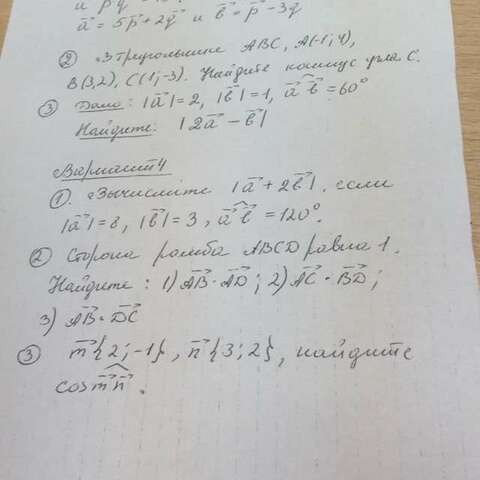 и p q
a⃗ = 5p⃗ + 2q⃗ и b⃗ = p⃗ - 3q⃗
② В треугольнике ABC, A(-1; 4),
B(3,2), C(1;-3). Найдите косинус угла C.
③ Дано: |a⃗| = 2, |b⃗| = 1, a⃗ b⃗ = 60°
Найдите: |2a⃗ - b⃗|
Вариант 4
①. Вычислите |a⃗ + 2b⃗|, если
|a⃗| = 8, |b⃗| = 3, a⃗ b⃗ = 120°.
② Сторона ромба ABCD равна 1.
Найдите: 1) AB⃗ · AD⃗; 2) AC⃗ · BD⃗;
3) AB⃗ · DC⃗
③ m⃗{2; -1}, n⃗{3; 2}, найдите
cos m⃗ n⃗.